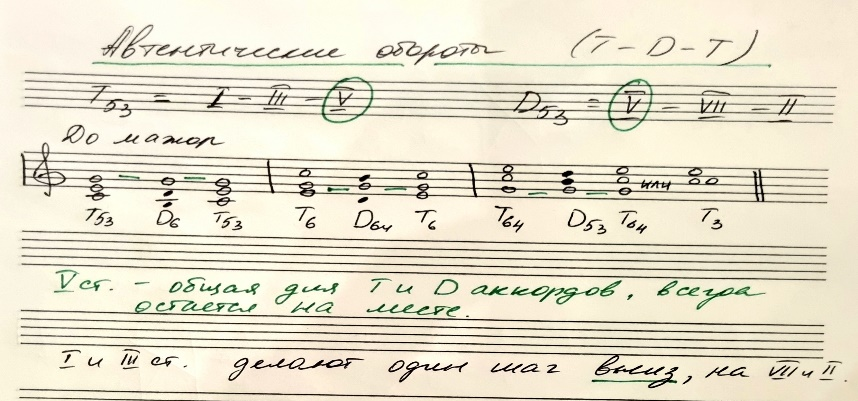 Автентические обороты (T - D - T)
T53 = I - III - V D53 = V - VII - II
До мажор
или
T53 D6 T53 T6 D64 T6 T64 D53 T64 T3
V ст. - общая для T и D аккордов, всегда
остаётся на месте.
I и III ст. делают один шаг вниз, на VII и II.